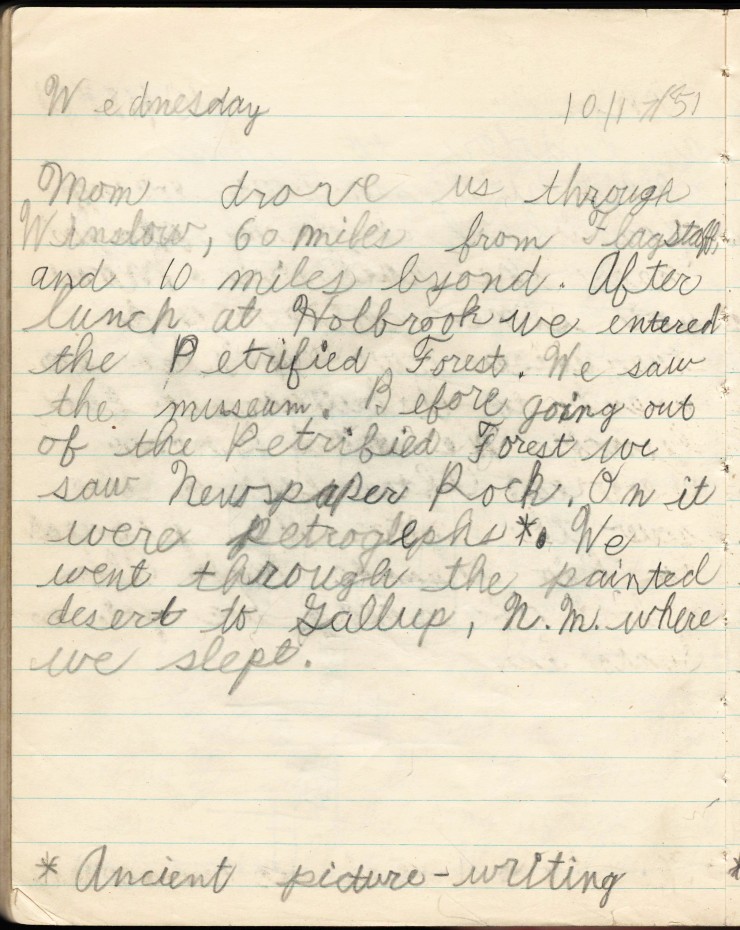 Wednesday 10/17/51
Mom drove us through
Winslow, 60 miles from Flagstaff,
and 10 miles byond. After
lunch at Holbrook we entered
the Petrified Forest. We saw
the museum. Before going out
of the Petrified Forest we
saw Newspaper Rock. On it
were petroglephs*. We
went through the painted
desert to Gallup, N.M. where
we slept.
* Ancient picture-writing